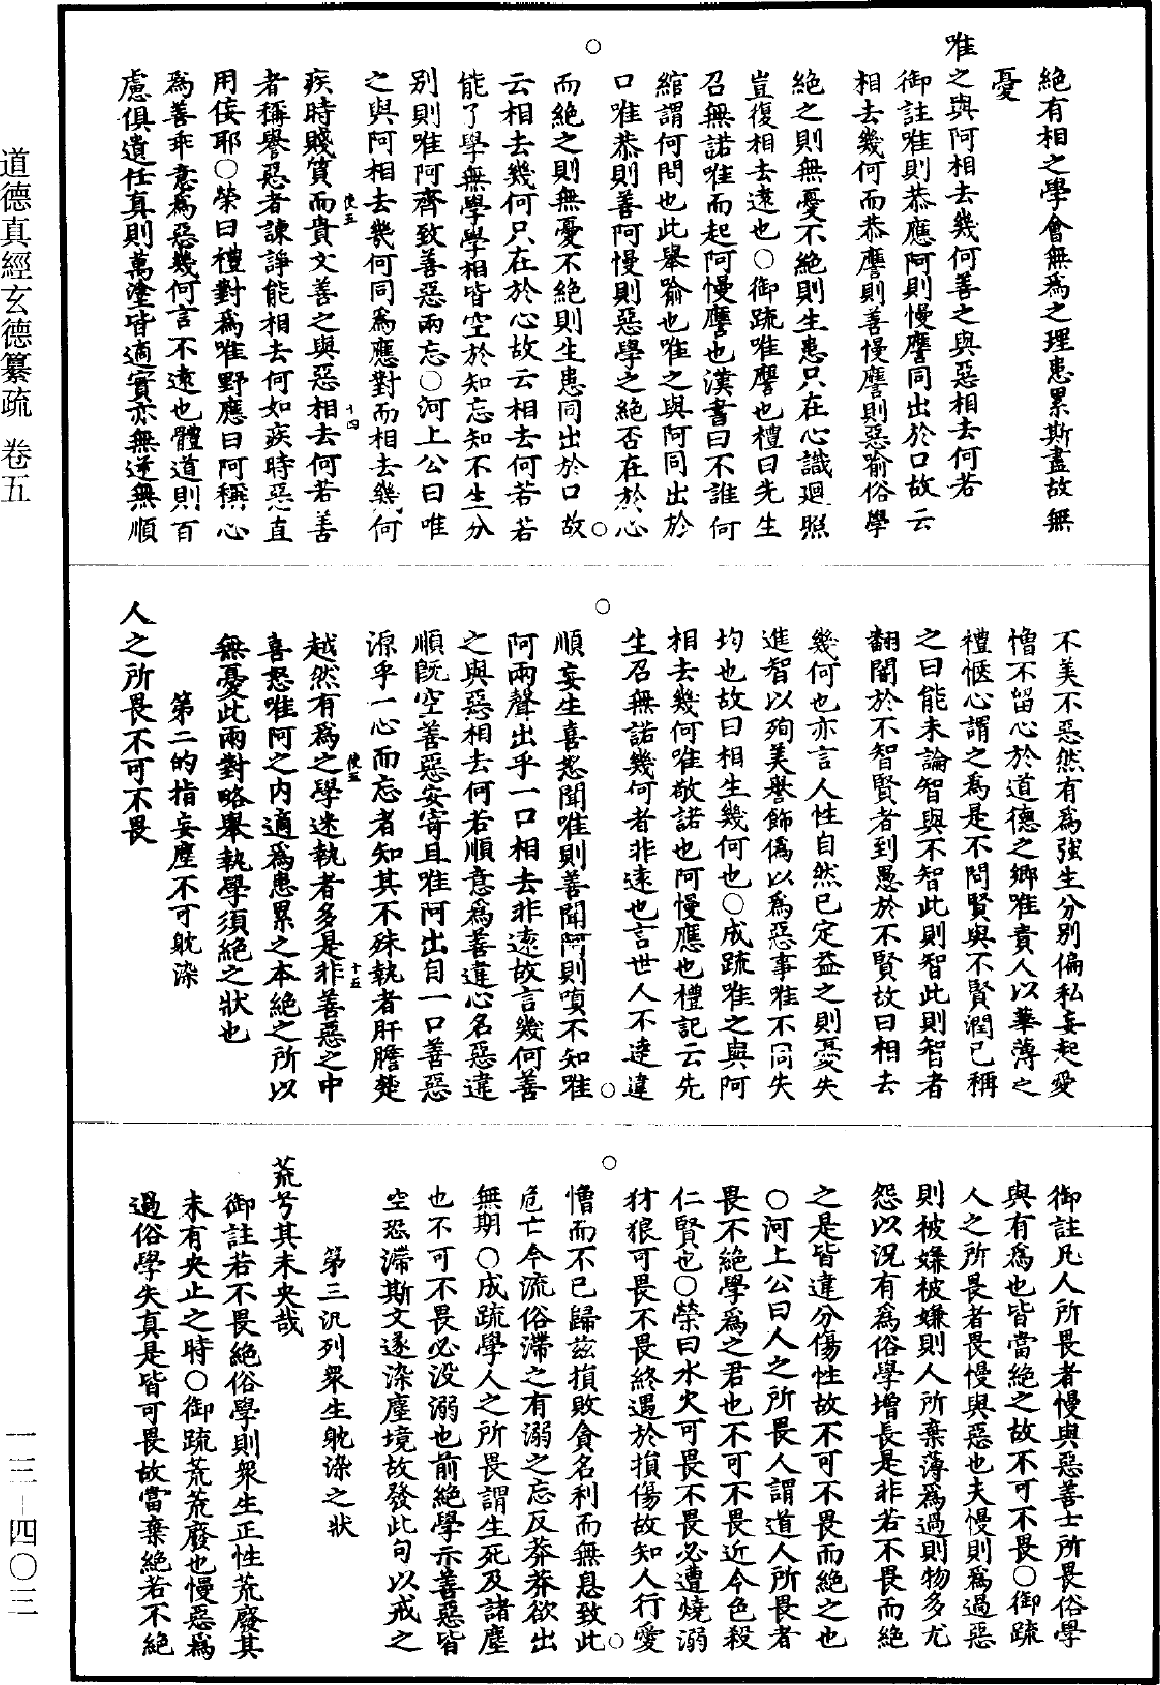 絶有相之學會無爲之理患累斯盡故無
憂
唯之與阿相去幾何善之與惡相去何若
御註唯則恭應阿則慢譍同出於口故云
相去幾何而恭譍則善慢譍則惡喻俗學
絶之則無憂不絶則生患只在心識廻照
豈復相去遠也○御疏唯譍也禮曰先生
召無諾唯而起阿慢譍也漢書曰不誰何
綰謂何問也此舉喻也唯之與阿同出於
口唯恭則善阿慢則惡學之絶否在於心
而絶之則無憂不絶則生患同出於口故
云相去幾何只在於心故云相去何若若
能了學無學學相皆空於知忘知不生分
別則唯阿齊致善惡兩忘○河上公曰唯
之與阿相去幾何同爲應對而相去幾何
疾時賤質而貴文善之與惡相去何若善
者稱譽惡者諫諍能相去何如疾時惡直
用佞耶○榮曰禮對爲唯野應曰阿稱心
爲善乖意爲惡幾何言不遠也體道則百
慮俱遺任真則萬塗皆適實亦無逆無順
不美不惡然有爲強生分別偏私妄起愛
憎不留心於道德之鄉唯責人以華薄之
禮愜心謂之爲是不問賢與不賢潤己稱
之曰能未論智與不智此則智此則智者
翻闇於不智賢者到愚於不賢故曰相去
幾何也亦言人性自然已定益之則憂失
進智以殉美譽飾僞以爲惡事唯不同失
均也故曰相生幾何也○成疏唯之與阿
相去幾何唯敬諾也阿慢應也禮記云先
生召無諾幾何者非遠也言世人不達違
順妄生喜怒聞唯則善聞阿則嗔不知唯
阿兩聲出乎一口相去非遠故言幾何善
之與惡相去何若順意爲善違心名惡違
順既空善惡安寄且唯阿出自一口善惡
源乎一心而忘者知其不殊執者肝膽楚
越然有爲之學迷執者多是非善惡之中
喜怒唯阿之内適爲患累之本絶之所以
無憂此兩對略舉執學須絶之狀也
第二的指妄塵不可躭染
人之所畏不可不畏
御註凡人所畏者慢與惡善士所畏俗學
與有爲也皆當絶之故不可不畏○御疏
人之所畏者畏慢與惡也夫慢則爲過惡
則被嫌被嫌則人所棄薄爲過則物多尤
怨以況有爲俗學增長是非若不畏而絶
之是皆違分傷性故不可不畏而絶之也
○河上公曰人之所畏人謂道人所畏者
畏不絶學爲之君也不可不畏近今色殺
仁賢也○榮曰水火可畏不畏必遭燒溺
犲狼可畏不畏終遇於損傷故知人行愛
憎而不已歸兹損敗貪名利而無息致此
危亡今流俗滯之有溺之忘反莽莽欲出
無期○成疏學人之所畏謂生死及諸塵
也不可不畏必没溺也前絶學示善惡皆
空恐滯斯文遂染塵境故發此句以戒之
第三汎列衆生躭染之狀
荒兮其未央哉
御註若不畏絶俗學則衆生正性荒廢其
未有央止之時○御疏荒荒廢也慢惡爲
過俗學失真是皆可畏故當棄絶若不絶
使五
十四
使五
十五
道德真經玄德纂疏 卷五
一三-四〇三